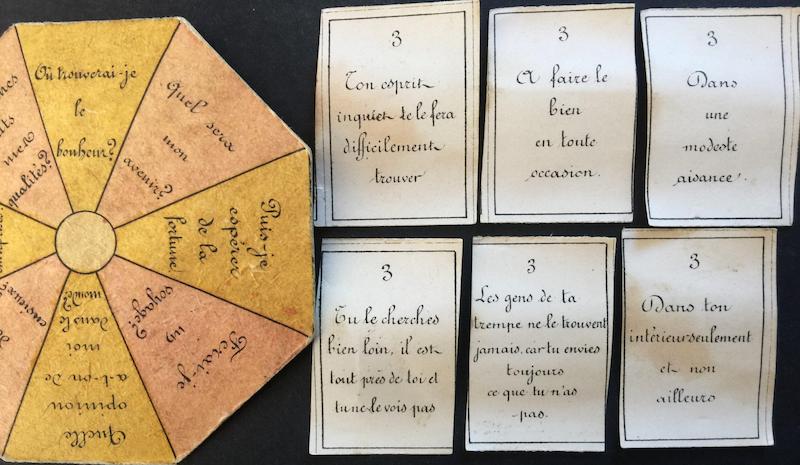 Où trouverai-je
le
bonheur?
Quel sera
mon
avenir?
Puis-je
espérer
de la
fortune?
Ferai-je
un
voyage?
Quelle
opinion
a-t-on de
moi
dans le
monde?
mes
qualités?
3
Ton esprit
inquiet te le fera
difficilement
trouver
3
A faire le
bien
en toute
occasion.
3
Dans
une
modeste
aisance.
3
Tu le cherches
bien loin, il est
tout près de toi et
tu ne le vois pas
3
Les gens de ta
trempe ne le trouvent
jamais, car tu envies
toujours
ce que tu n'as
pas.
3
Dans ton
intérieur seulement
et non
ailleurs